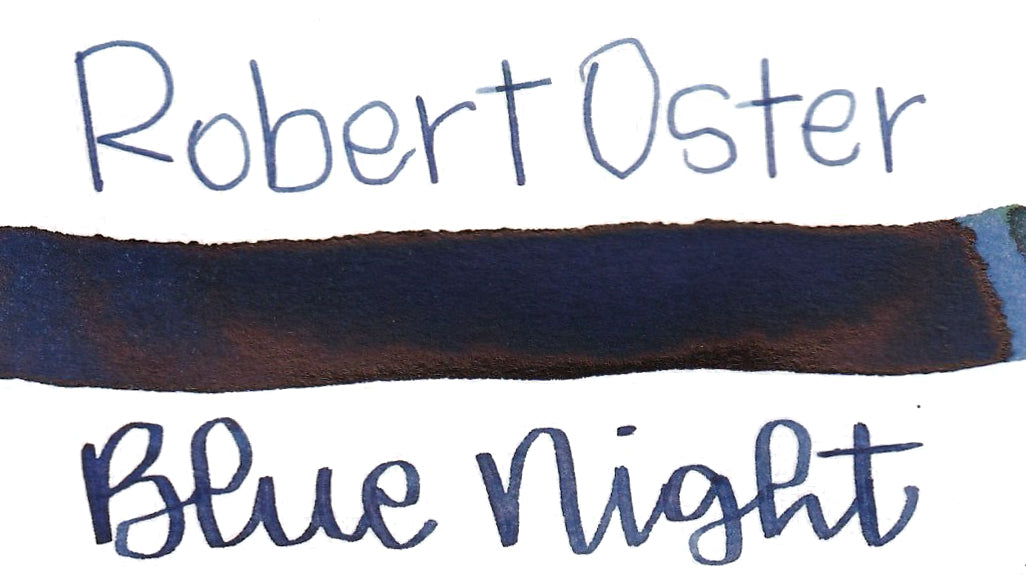 Robert Oster
Blue Night